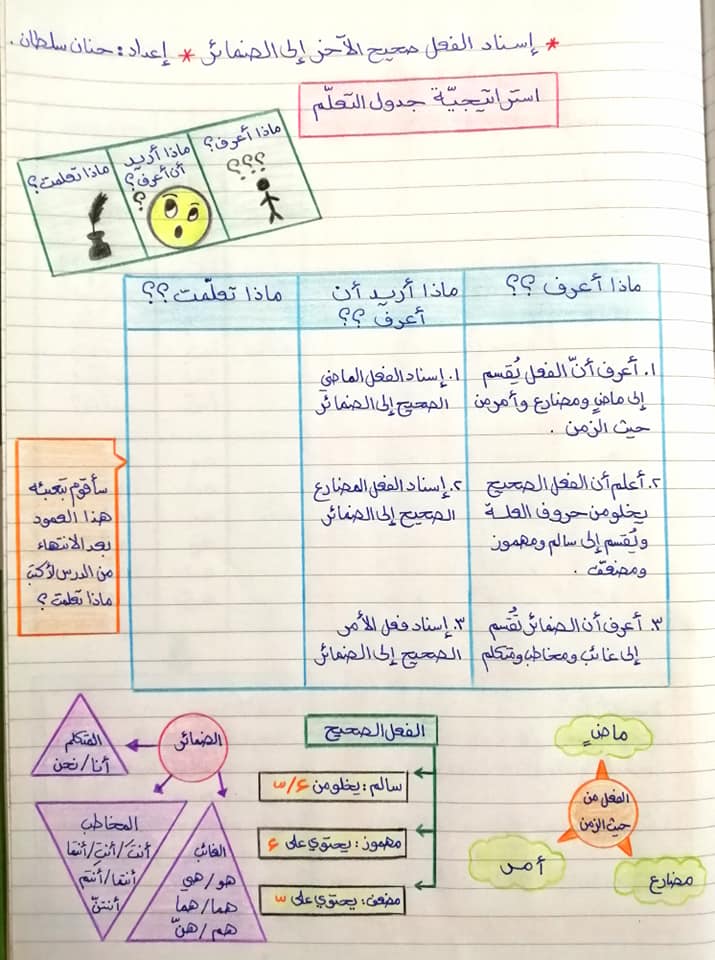 * إسناد الفعل صحيح الآخر إلى الضمائر * إعداد: حنان سلطان.
استراتيجيّة جدول التعلّم
ماذا أعرف؟
؟؟؟
ماذا أريد
أن أعرف؟
؟
ماذا تعلمت؟
ماذا أعرف ؟؟
ماذا أريد أن
أعرف ؟؟
ماذا تعلّمت ؟؟
١. أعرف أنّ الفعل يُقسم
إلى ماضٍ ومضارع وأمر من
حيث الزمن .
٢. أعلم أن الفعل الصحيح
يخلو من حروف العلة
ويُقسم إلى سالم ومهموز
ومضعّف .
٣. أعرف أن الضمائر تُقسم
إلى غائب ومخاطب ومتكلم
١. إسناد الفعل الماضي
الصحيح إلى الضمائر
٢. إسناد الفعل المضارع
الصحيح إلى الضمائر
٣. إسناد فعل الأمر
الصحيح إلى الضمائر
سأقوم بتعبئة
هذا العمود
بعد الانتهاء
من الدرس لأكتب
ماذا تعلمت ؟
ماضٍ
الفعل من
حيث الزمن
أمر
مضارع
الفعل الصحيح
سالم: يخلو من ء/ ّ
مهموز: يحتوي على ء
مضعف: يحتوي على ّ
الضمائر
المتكلم
أنا/نحن
المخاطب
أنتَ/أنتِ/أنتما
أنتما/أنتم
أنتنّ
الغائب
هو/هي
هما/هما
هم/هنّ